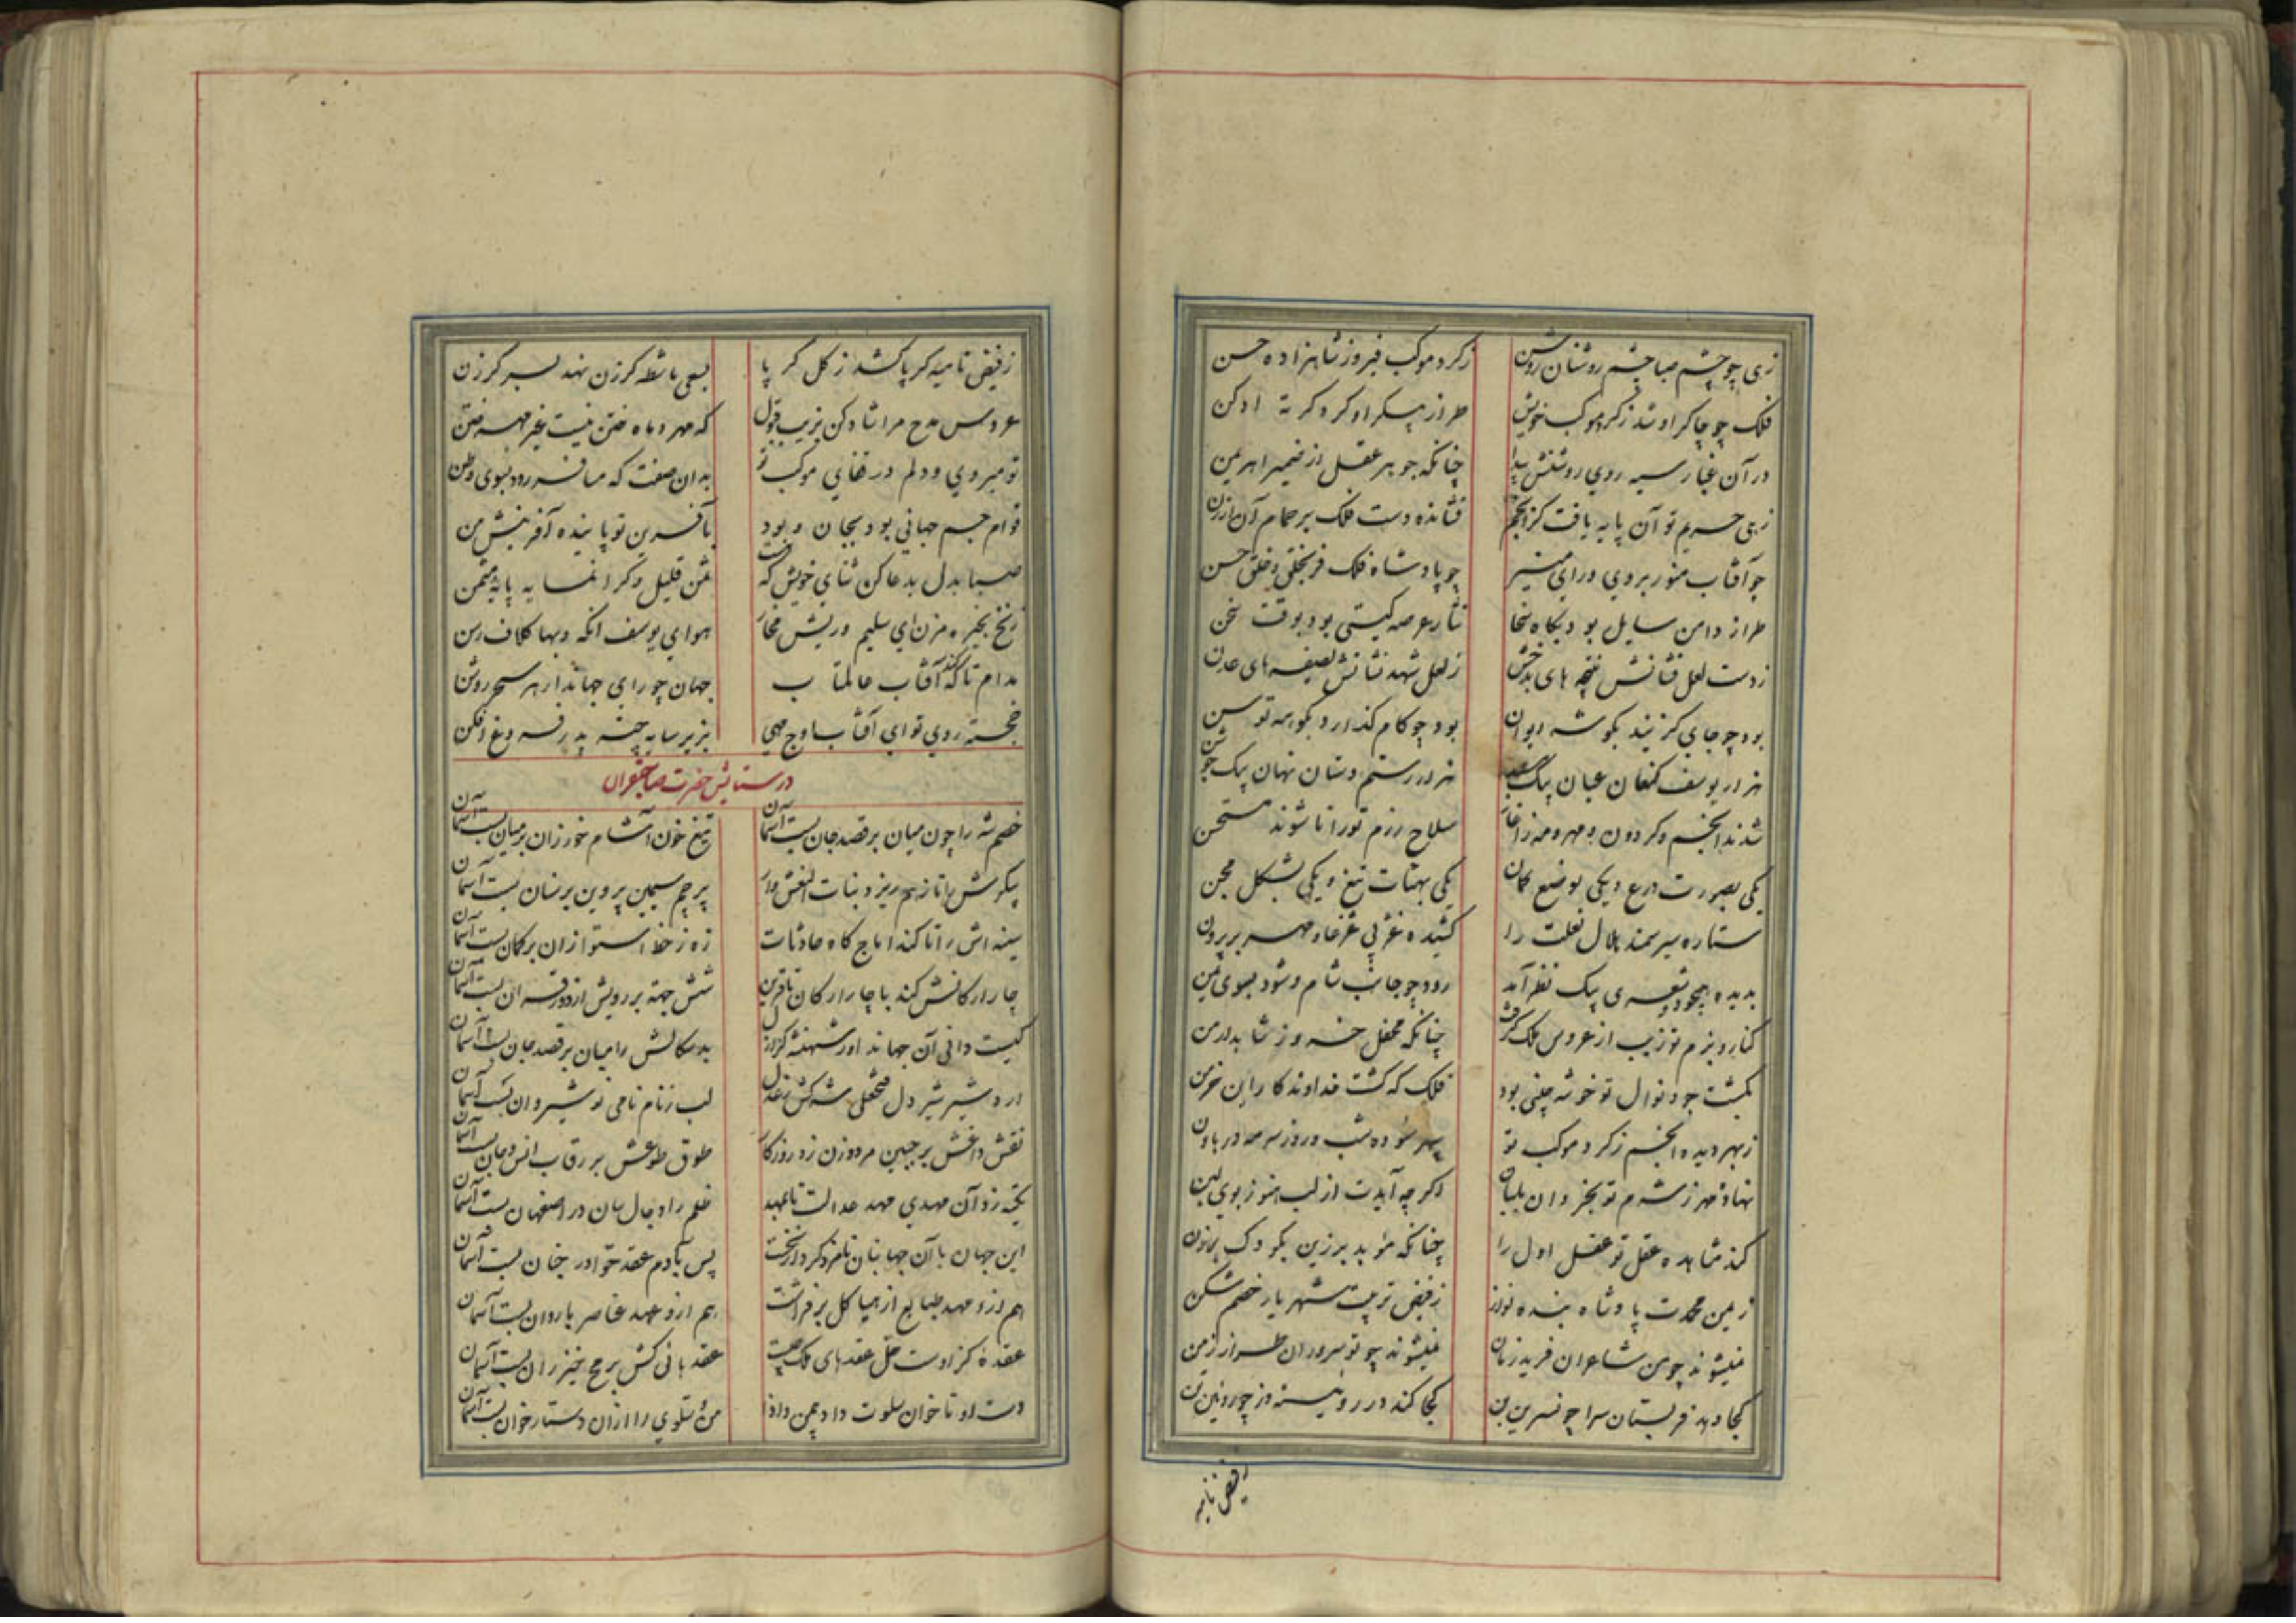 زهی چو چشم صبا چشم روشنان روشن
ز کرد موکب فیروز شاهزاده حسن
فلک چو چاکر او شد ز کرد موکب خویش
طراز پیکر او کرد کرته ادکن
در آن غبار سیه روی روشنش پیدا
چنانکه جوهر عقل از ضمیر اهریمن
زهی حریم تو آن پایه یافت کز انجم
فشانده دست فلک بر حمام آن ارزن
چو آفتاب منور بروی و رای منیر
چو پادشاه فلک فر بخلق و خلق حسن
طراز دامن سایل بود بکاه سخا
نثار عرصه کیتی بود بوقت سخن
ز دست لعل فشانش نتیجه های بدخش
ز لعل شهد نشانش لطیفه های عدن
بود چو جای کزیند بکوشه ایوان
بود چو کام کذارد بکوهه توسن
هزار یوسف کنعان عیان بیک
هزار رستم دستان نهان بیک جوشن
شدند انجم و کردون و مهر و مه ز آغاز
سلاح رزم تو را تا شوند مستحسن
یکی بصورت درع و یکی بوضع کمان
یکی بهیئات تیغ و یکی بشکل مجن
ستاره سیر سمند هلال نعلت را
کشیده غرفه مهر بر پرون
بدیده همچو دو شعری بیک نظر آمد
رود چو جانب شام و شود بسوی یمن
کنار و بزم تو زیب از عروس ملک کرفت
چنانکه محفل خسرو ز شاهد ارمن
بکشت جود نوال تو خوشه چینی بود
فلک که کشت خداوند کار این خرمن
ز بهر دیده انجم ز کرد موکب تو
سپهر سوده شب و روز سرمه در هاون
نهاده مهر ز شرم تو بخردان بلبان
اکر چه آیدت از لب هنوز بوی لبن
کند مشاهده عقل تو عقل اول را
چنانکه مؤبد برزین بکودک برزن
ز یمن محمدت پادشاه بنده نواز
ز فیض تربیت شهریار خصم شکن
نمیشوند چو من شاعران فرید زمان
نمیشوند چو تو سروران طراز زمن
کجا دهد فر بستان سرا چو نسرین بن
کجا کند در روئینه دز چو روئین تن
ز فیض نامیه
ز فیض نامیه کر پا کشد ز کل کر پا
بسعی ماشطه کرزن نهد بسر کرزن
عروس مدح مرا شاد کن بزیب قبول
که مهر و ماه ختن نیست غیر مهر ختن
تو میروی و دلم در قفای موکب تو
بدان صفت که مسافر رود بسوی وطن
قوام جسم جهانی بود بجان و بود
بآفرین تو پاینده آفرینش من
صبا بدل بدعا کن ثنای خویش که هست
ثمن قلیل و کرانمایه پایه مثمن
زنخ بخیره مزن ای سلیم و ریش مخار
هوای یوسف آنکه و بها کلاف رسن
مدام تا که کند آفتاب عالمتاب
جهان چو رای جهاندار هر سحر روشن
خجسته روی تو ای آفتاب اوج مهی
بزیر سایه چتر پدر فروغ افکن
در ستایش حضرت صاحبقران
خصم شه را چون میان بر قصد جان بست آسمان
تیغ خون آشام خور زان بر میان بست آسمان
پیکرش را تا ز هم ریزد بنات النعش وار
پرچم سیمین پروین بر سنان بست آسمان
سینه اش را تا کند آماج کاه حادثات
زه ز خط استوا زان بر کمان بست آسمان
چار ارکانش کند با چار ارکان تا قرین
شش جهت بر رویش از دور قران بست آسمان
کیست دانی آن جهاندار شهنشه کز ازل
بدسکالش را میان بر قصد جان بست آسمان
اردشیر شیر دل فتحعلی شه کش ز عدل
لب ز نام نامی نوشیروان بست آسمان
نقش داغش بر جبین مرد و زن زد روزکار
طوق طوعش بر رقاب انس و جان بست آسمان
تکیه زد آن مهدی مهد عدالت تا بمهد
ظلم را دجال سان در اصفهان بست آسمان
این جهان با آن جهانبان نامزد کرد از نخست
پس بآدم عقد حوا در جنان بست آسمان
هم ازو مهد طبایع از هیاکل بر فراشت
هم ازو عهد عناصر با روان بست آسمان
عقده کز اوست حل عقدهای ملک چیست
عقدهائی کش برمح خیزران بست آسمان
دست او تا خوان سلوت داد چمن
من و سلوی را از آن دستار خوان بست آسمان